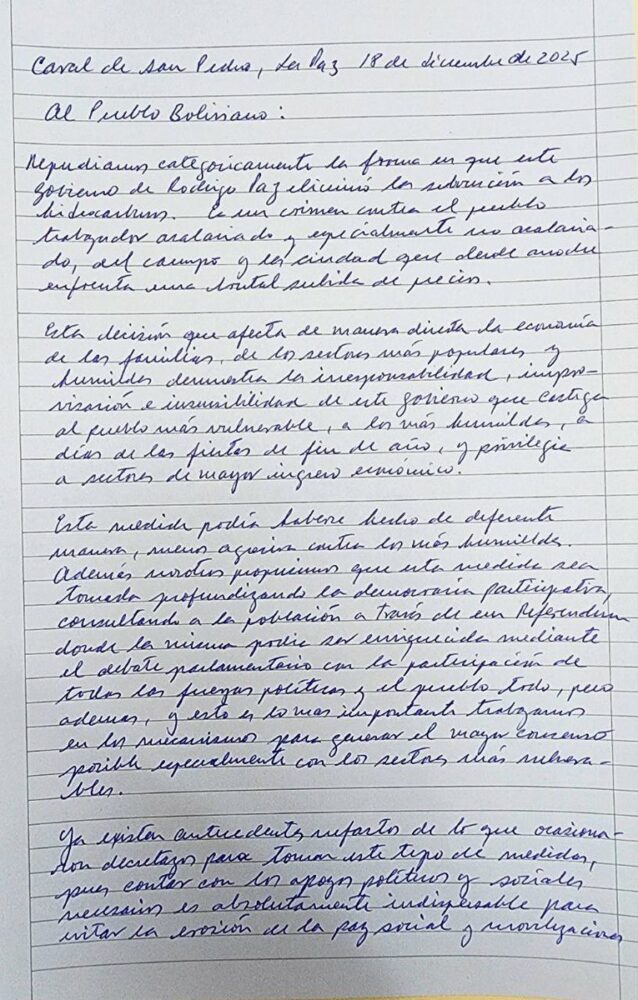 Carcel de San Pedro, La Paz 18 de diciembre de 2025
Al Pueblo Boliviano:
Repudiamos categóricamente la forma en que este
gobierno de Rodrigo Paz eliminó la subvención a los
hidrocarburos. Es un crimen contra el pueblo
trabajador asalariado y especialmente no asalaria-
do, del campo y la ciudad que desde anoche
enfrenta una brutal subida de precios.
Esta decisión que afecta de manera directa la economía
de las familias, de los sectores más populares y
humildes demuestra la irresponsabilidad, impro-
visación e insensibilidad de este gobierno que castiga
al pueblo más vulnerable, a los más humildes, a
días de las fiestas de fin de año, y privilegia
a sectores de mayor ingreso económico.
Esta medida podía haberse hecho de diferente
manera, menos agresiva contra los más humildes.
Además nosotros propusimos que esta medida sea
tomada profundizando la democracia participativa,
consultando a la población a través de un Referendum
donde la misma podía ser enriquecida mediante
el debate parlamentario con la participación de
todas las fuerzas políticas y el pueblo todo, pero
ademas, y esto es lo mas importante trabajamos
en los mecanismos para generar el mayor consenso
posible especialmente con los sectores más vulnera-
bles.
Ya existen antecedentes nefastos de lo que ocasiona-
ron decretazos para tomar este tipo de medidas,
pues contar con los apoyos políticos y sociales
necesarios es absolutamente indispensable para
evitar la erosión de la paz social y movilizaciones